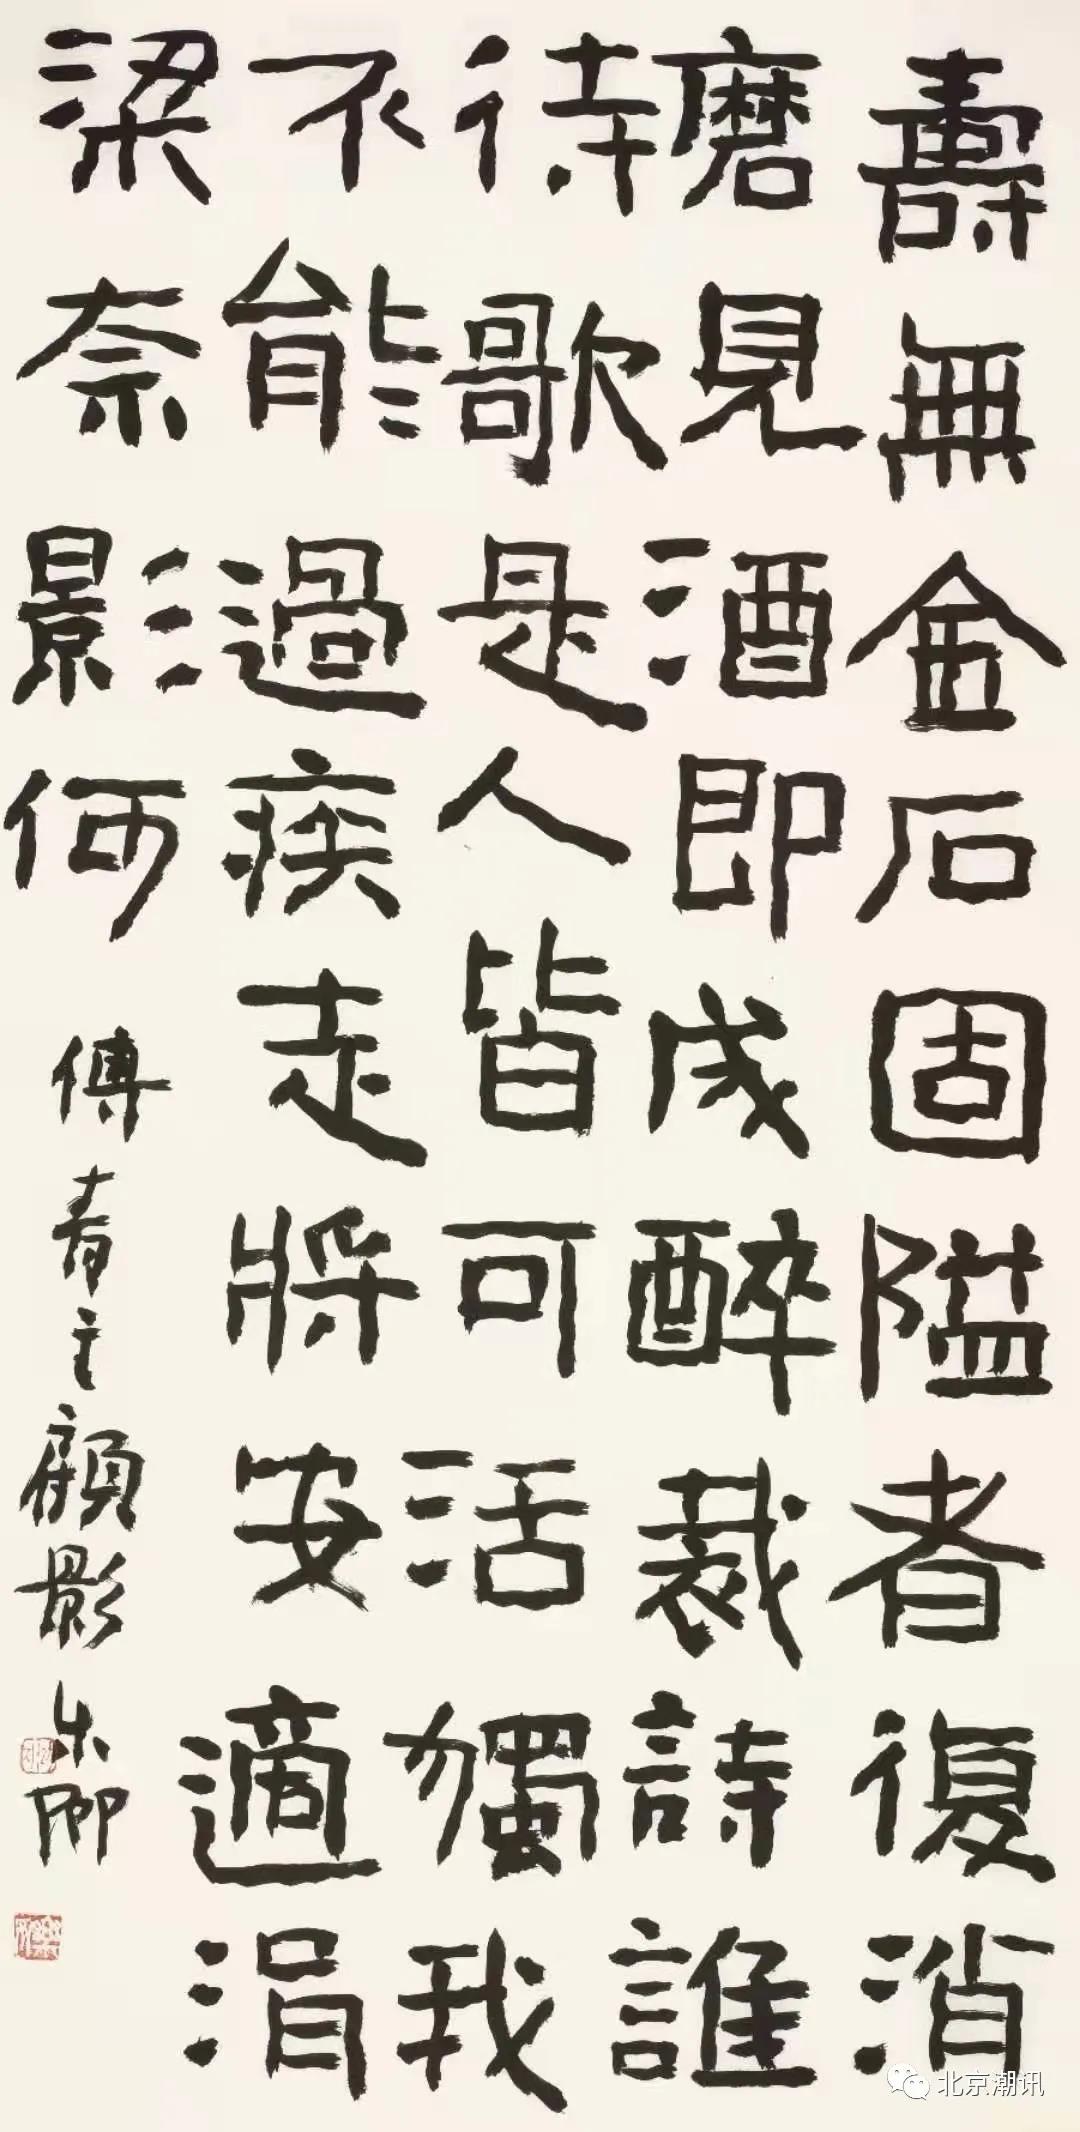 壽無金石固隘者復消
磨見酒即成醉裁詩誰
待歌是人皆可活獨我
不能過疾走將安適涓
梁奈影何
傅青主顧影
北京潮讯